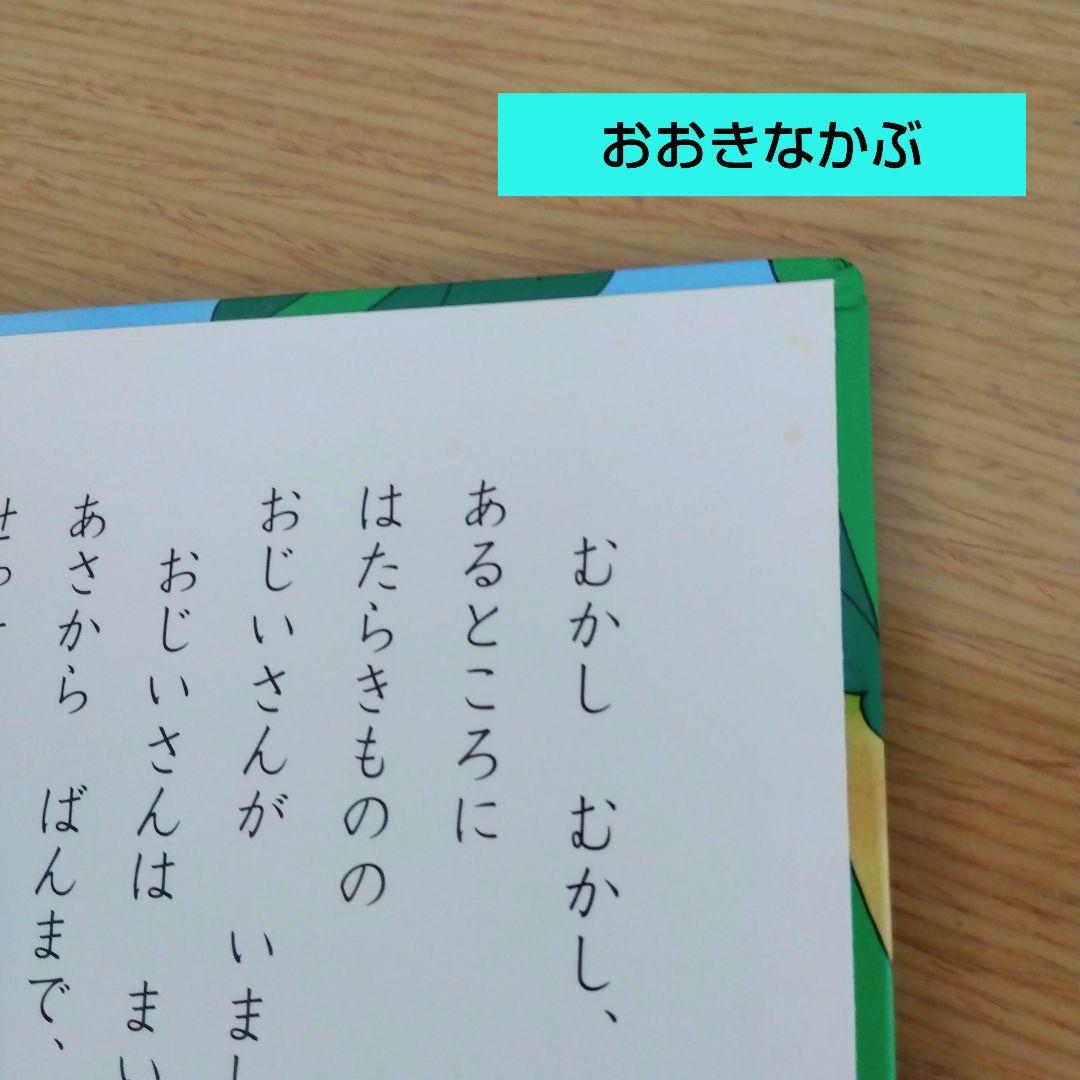 おおきなかぶ
むかし　むかし、
あるところに
はたらきものの
おじいさんが　いまし
おじいさんは　まい
あさから　ばんまで、
せっせ